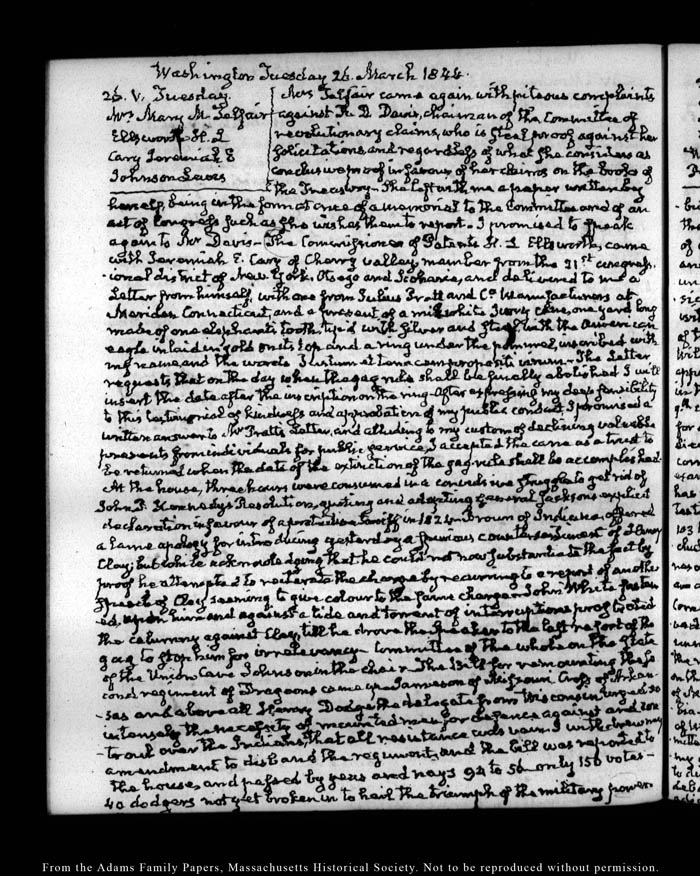 Washington Tuesday 26. March 1844.
26. V. Tuesday.
Mrs Mary M. Telfair
Ellsworth H. L
Cary Jeremiah E
Johnson Cave
Mrs Telfair came again with piteous complaints
against R. D. Davis, chairman of the Committee of
revolutionary claims, who is steel proof against her
solicitations and regardless of what she considers as
conclusive proof in favour of her claims on the books of
the Treasury. She left with me a paper written by
herself, being in the form at once of a memorial to the Committee and of an
act of Congress such as she wishes them to report. I promised to speak
again to Mr Davis. The Commissioner of Patents H. L Ellsworth, came
with Jeremiah E. Cary of Cherry valley, member from the 21st congress-
ional district of New York. Otsego and Scoharie, and delivered to me a
Letter from himself, with one from Julius Pratt and Co Manufacturers at
Meriden Connecticut, and a present of a milk white Ivory cane, one yard long
made of one elephant's tooth, tip'd with silver and steel, with the American
eagle inlaid in gold on its top and a ring under the pommel, inscribed with
my name and the words Justum et tenacem propositi virum. The Letter
requests that on the day when the gag-rule shall be finally abolished I will
insert the date after the inscription on the ring. After expressing my deep sensibility
to this testimonial of kindness and approbation of my public conduct I promised a
written answer to Mr Pratt's Letter, and alluding to my custom of declining valuable
presents from individuals for public service, I accepted the cane as a trust to
be returned when the date of the extinction of the gag-rule shall be accomplished.
At the house, three hours were consumed in a convulsive struggle to get rid of
John P. Kennedy's Resolution, quoting and adopting general Jackson's explicit
declaration in favour of a protective tariff in 1824. Brown of Indiana, offered
a lame apology for introducing yesterday a spurious counter sentiment of Henry
Clay; but while acknowledging that he could not now substantiate the fact by
proof he attempted to reiterate the charge by recurring to a report of another
speech of Clay, seeming to give colour to the same charge. John White fasten-
ed upon him and against a tide and torrent of interruptions prostrated
the calumny against Clay, till he drove the Speaker to the last resort of the
gag to stop him for irrelevancy. Committee of the whole on the State
of the Union Cave Johnson in the chair. The Bill for remounting the se-
cond regiment of Dragoons came up. Jameson of Missouri Cross of Arkan-
sas and above all Henry Dodge the delegate from Wisconsin urged so
intensely the necessity of mounted men for defence against and
over the Indians, that all resistance was vain. I withdrew my
amendment to disband the regiment, and the bill was reported to
the house, and passed by yeas and nays 94 to 56 only 150 votes—
40 dodgers not yet broken in to hail the triumph of the military power.
From the Adams Family Papers, Massachusetts Historical Society. Not to be reproduced without permission.